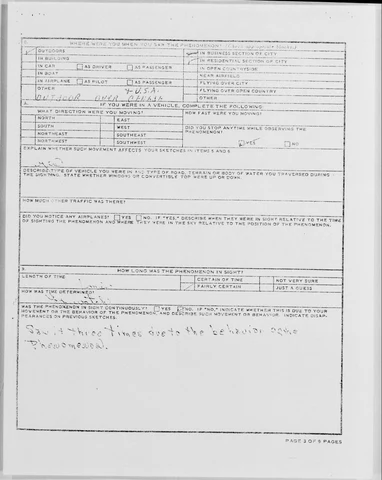 WHERE WERE YOU WHEN YOU SAW THE PHENOMENON?
OUTDOORS
IN BUILDING
IN CAR AS DRIVER AS PASSENGER
IN BOAT
IN AIRPLANE AS PILOT AS PASSENGER
OTHER U.S.A.
OUTDOOR OVER
IN BUSINESS SECTION OF CITY
IN RESIDENTIAL SECTION OF CITY
IN OPEN COUNTRYSIDE
NEAR AIRFIELD
FLYING OVER CITY
FLYING OVER OPEN COUNTRY
OTHER
IF YOU WERE IN A VEHICLE, COMPLETE THE FOLLOWING:
WHAT DIRECTION WERE YOU MOVING?
NORTH EAST
SOUTH WEST
NORTHEAST SOUTHEAST
NORTHWEST SOUTHWEST
HOW FAST WERE YOU MOVING?
DID YOU STOP ANYTIME WHILE OBSERVING THE PHENOMENON?
YES NO
EXPLAIN WHETHER SUCH MOVEMENT AFFECTS YOUR SKETCHES IN ITEMS 5 AND 6.
DESCRIBE TYPE OF VEHICLE YOU WERE IN AND TYPE OF ROAD, TERRAIN OR BODY OF WATER YOU TRAVERSED DURING
THE SIGHTING. STATE WHETHER WINDOWS OR CONVERTIBLE TOP WERE UP OR DOWN.
HOW MUCH OTHER TRAFFIC WAS THERE?
DID YOU NOTICE ANY AIRPLANES? YES NO. IF "YES," DESCRIBE WHEN THEY WERE IN SIGHT RELATIVE TO THE TIME
OF SIGHTING THE PHENOMENON AND WHERE THEY WERE IN THE SKY RELATIVE TO THE POSITION OF THE PHENOMENON.
HOW LONG WAS THE PHENOMENON IN SIGHT?
LENGTH OF TIME
CERTAIN OF TIME NOT VERY SURE
FAIRLY CERTAIN JUST A GUESS
HOW WAS TIME DETERMINED?
WAS THE PHENOMENON IN SIGHT CONTINUOUSLY? YES NO. IF "NO," INDICATE WHETHER THIS IS DUE TO YOUR
MOVEMENT OR THE BEHAVIOR OF THE PHENOMENON, AND DESCRIBE SUCH MOVEMENT OR BEHAVIOR. INDICATE DISAP-
PEARANCES ON PREVIOUS SKETCHES.
Saw it three times due to the behavior of the
Phenomenon.
PAGE 3 OF 5 PAGES